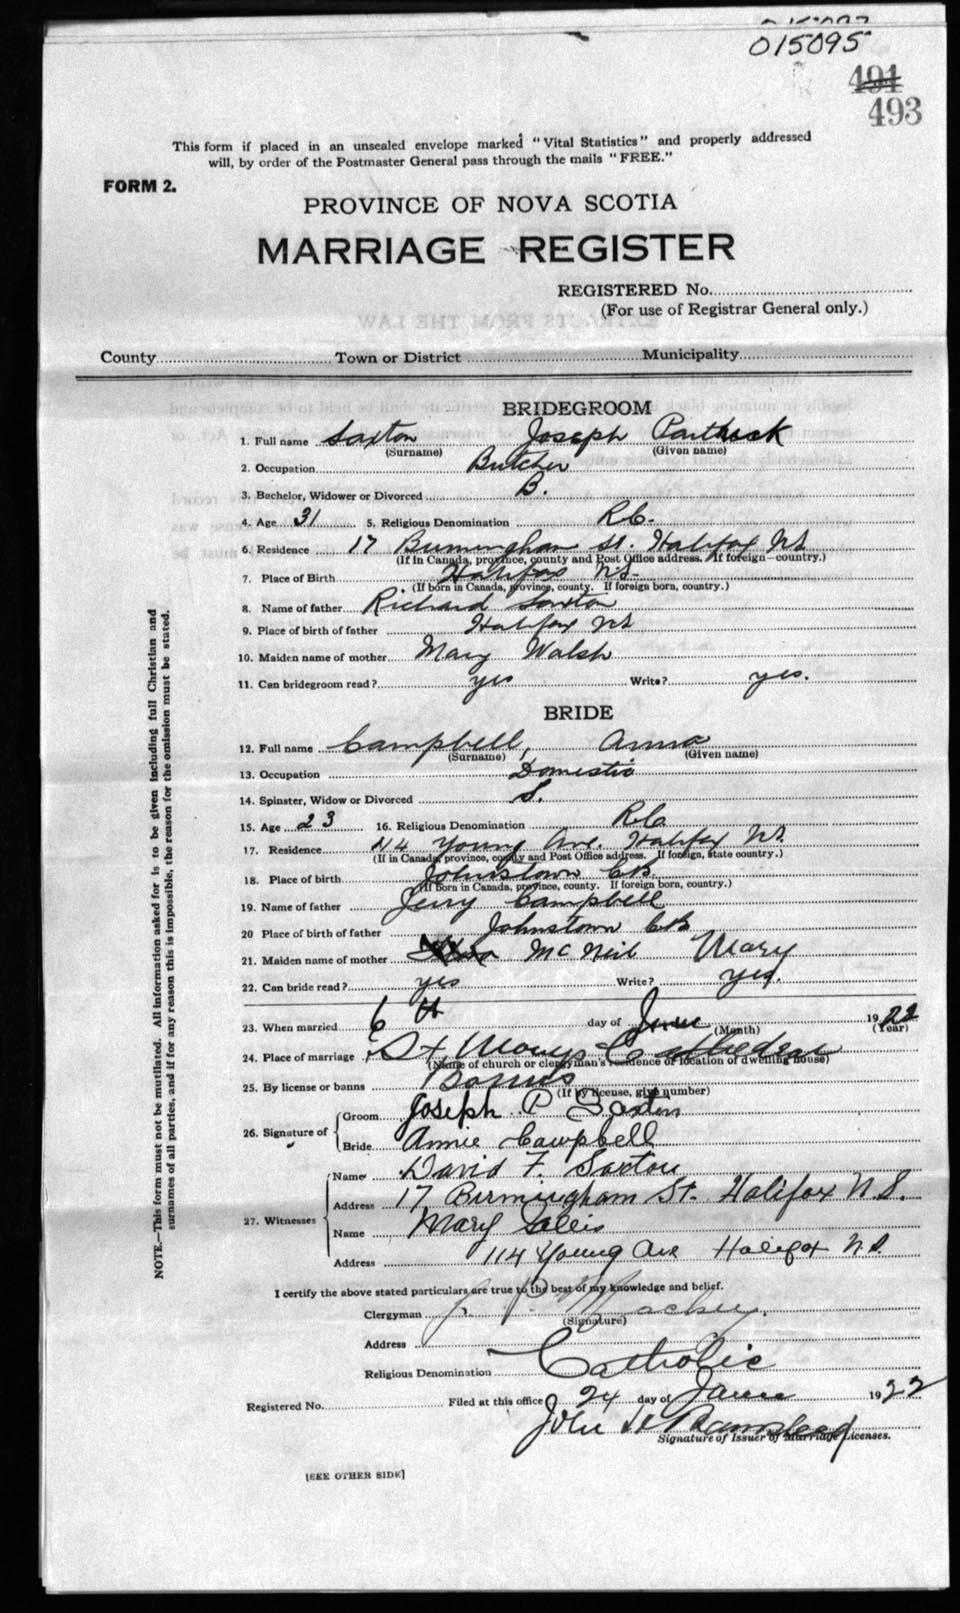 015095
491
493
This form if placed in an unsealed envelope marked "Vital Statistics" and properly addressed
will, by order of the Postmaster General pass through the mails "FREE."
FORM 2.
PROVINCE OF NOVA SCOTIA
MARRIAGE REGISTER
REGISTERED No.
(For use of Registrar General only.)
County Town or District Municipality
BRIDEGROOM
1. Full name Saxton Joseph Partrick
(Surname) (Given name)
2. Occupation Butcher
3. Bachelor, Widower or Divorced B.
4. Age 31 5. Religious Denomination R.C.
6. Residence 17 Birmingham St. Halifax NS
(If in Canada, province, county and Post Office address. If foreign—country.)
7. Place of Birth Halifax N.S.
(If born in Canada, province, county. If foreign born, country.)
8. Name of father Richard Saxton
9. Place of birth of father Halifax NS
10. Maiden name of mother Mary Walsh
11. Can bridegroom read? yes Write? yes.
BRIDE
12. Full name Campbell, Anna
(Surname) (Given name)
13. Occupation Domestic
14. Spinster, Widow or Divorced S.
15. Age 23 16. Religious Denomination R.C.
17. Residence 114 Young Ave. Halifax NS.
(If in Canada, province, county and Post Office address. If foreign, state country.)
18. Place of birth Johnstown CB
(If born in Canada, province, county. If foreign born, country.)
19. Name of father Jerry Campbell
20 Place of birth of father Johnstown CB
21. Maiden name of mother McNeil Mary
22. Can bride read? yes Write? yes.
23. When married 6th day of June (Month) 1922 (Year)
24. Place of marriage St. Marys Cathedral
(Name of church or clergyman's residence or location of dwelling house)
25. By license or banns Banns
(If by license, give number)
26. Signature of Groom Joseph P Saxton
Bride Annie Campbell
27. Witnesses Name David F. Saxton
Address 17 Birmingham St. Halifax N.S.
Name Mary
Address 114 Young Ave Halifax N.S.
I certify the above stated particulars are true to the best of my knowledge and belief.
Clergyman
(Signature)
Address
Religious Denomination Catholic
Registered No. Filed at this office 24 day of June 1922
Signature of Issuer of Marriage Licenses.
[SEE OTHER SIDE]
NOTE.—This form must not be mutilated. All information asked for is to be given including full Christian and
surnames of all parties, and if for any reason this is impossible, the reason for the omission must be stated.